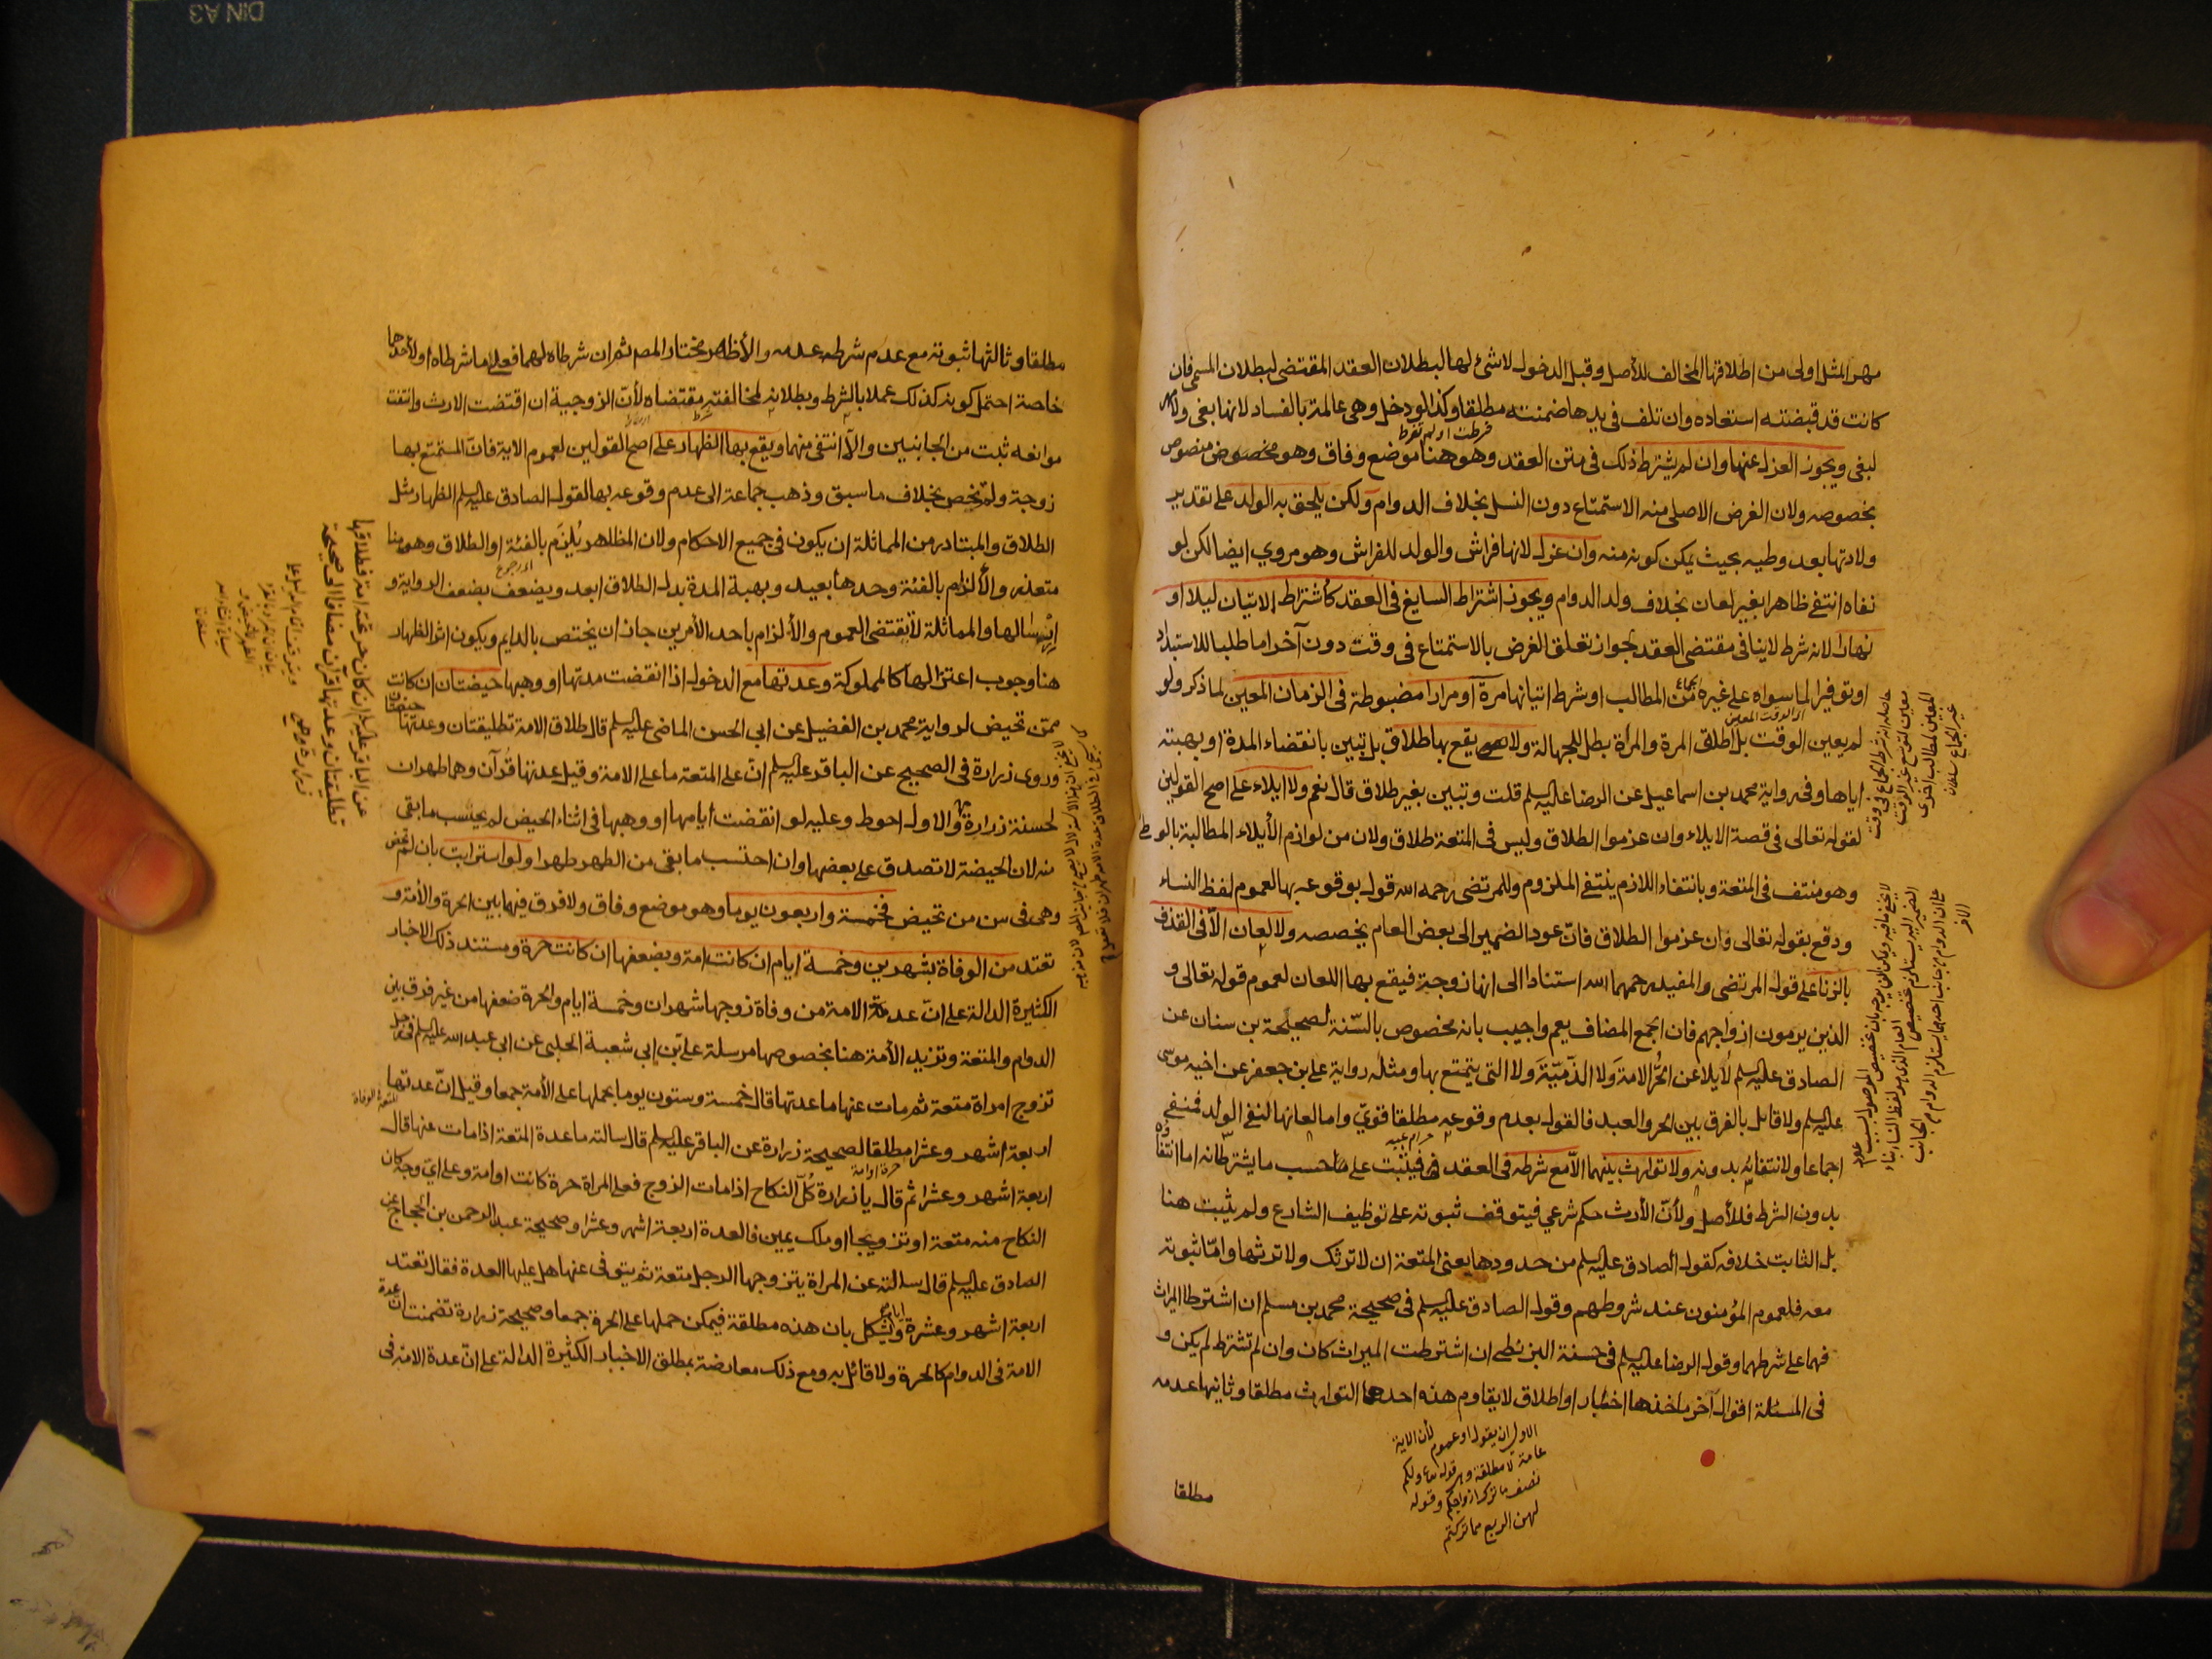 مهر المثل اولى من اطلاقها المخالف للأصل وقبل الدخول لاشئ لها لبطلان العقد المقتضى لبطلان المسمى فان
كانت قد قبضته استعاده وان تلف فى يدها ضمنته مطلقا وكذا لو دخل وهى عالمة بالفساد لانها بغى ولا مهر
لبغى ويجوز العزل عنها وان لم يشترط ذلك فى متن العقد وهو هنا موضع وفاق وهو منصوص
بخصوصه ولان الغرض الاصلى منه الاستمتاع دون النسل بخلاف الدوام ولكن يلحق به الولد على تقدير
ولادتها بعد وطيه بحيث يمكن كونه منه وان عزل لانها فراش والولد للفراش وهو مروي ايضا لكن لو
نفاه انتفى ظاهرا بغير لعان بخلاف ولد الدوام ويجوز اشتراط السايغ فى العقد كأشتراط الاتيان ليلا او
نهارا لانه شرط لاينافى مقتضى العقد لجواز تعلق الغرض بالاستمتاع فى وقت دون آخر اما طلبا للاستبداد
او توفيرا لما سواه على غيره من المطالب او شرط اتيانها مرة او مرارا مضبوطة فى الزمان المعين لما ذكر ولو
لم يعين الوقت بل اطلق المرة والمراة بطل للجهالة ولا يقع بها طلاق بل تبين بانقضاء المدة او بهبته
اياها وفى رواية محمد بن اسماعيل عن الرضا عليه السلم قلت وتبين بغير طلاق قال نعم ولا ايلاء على اصح القولين
لقوله تعالى فى قصة الايلاء وان عزموا الطلاق وليس فى المتعة طلاق ولان من لوازم الأيلاء المطالبة بالوطى
وهو منتف فى المتعة وبانتفاء اللازم ينتفى الملزوم وللمرتضى رحمه الله قول بوقوعه بها لعموم لفظ النساء
ودفع بقوله تعالى وان عزموا الطلاق فانّ عود الضمير الى بعض العام يخصصه ولا لعان الّا فى القذف
بالزنا على قول المرتضى والمفيد رحمهما الله استنادا الى انها زوجة فيقع بها اللعان لعموم قوله تعالى و
الذين يرمون ازواجهم فان الجمع المضاف يعم واجيب بانه مخصوص بالسّنة لصحيحة بن سنان عن
الصادق عليه السلم لايلاعن الحُرُّ الامةَ ولا الذّمّيّةَ ولا التى يتمتع بها ومثله رواية على بن جعفر عن اخيه موسى
عليه السلم ولا قائل بالفرق بين الحر والعبد فالقول بعدم وقوعه مطلقا قوىّ واما لعانها لنفى الولد فمنفى
اجماعا ولانتفائه بدونه ولا توارث بينهما الّا مع شرطه فى العقد فيثبت على حسب ما يشترطانه اما انتفاؤه
بدون الشرط فللأصل ولأنّ الأرث حكم شرعي فيتوقف ثبوته على توظيف الشارع ولم يثبت هنا
بل الثابت خلافه كقول الصادق عليه السلم من حدودها يعنى المتعة ان لا ترثك ولا ترثها وامّا ثبوته
معه فلعموم المؤمنون عند شروطهم وقول الصادق عليه السلم فى صحيحة محمد بن مسلم ان اشترطا الميراث
فهما على شرطهما وقول الرضا عليه السلم فى حسنة البزنطى ان اشترطت الميراث كان وان لم تشترط لم يكن و
فى المسئلة اقوال آخر ماخذها اخبار او اطلاق لايقاوم هذه احدها التوارث مطلقا وثانيها عدمه
الاولى ان يقول او عموم لأن الاية
عامة لا مطلقة وهو قوله تعا ولكم
نصف ما ترك ازواجكم وقوله
لهن الربع مما تركتم
مطلقا
مطلقا وثالثها ثبوته مع عدم شرطه عدمه والأظهر مختار المصم ثم ان شرطاه لهما فعلى ما شرطاه او لأحدهما
خاصة احتمل كونه كذلك عملا بالشرط وبطلانه لمخالفته مقتضاه لأنّ الزوجية ان اقتضت الارث وانتفت
موانعه ثبت من الجانبين والّا انتفى منهما ويقع بها الظهار على اصح القولين لعموم الاية فانّ المستمتع بها
زوجة ولم تخص بخلاف ما سبق وذهب جماعة الى عدم وقوعه بها لقول الصادق عليه السلم الظهار مثل
الطلاق والمتبادر من المماثلة ان يكون فى جميع الاحكام ولان المظاهر يُلزَم بالفئة او الطلاق وهو هنا
متعذر والألزام بالفئة وحدها بعيد وبهبة المدة بدل الطلاق ابعد ويضعف بضعف الرواية و
ارسالها والمماثلة لا تقتضى العموم والألزام باحد الأمرين جاز ان يختص بالدايم ويكون اثر الظهار
هنا وجوب اعتزالها كالمملوكة وعدتها مع الدخول اذا انقضت مدتها او وهبها حيضتان ان كانت
ممن تحيض لرواية محمد بن الفضيل عن ابى الحسن الماضى عليه السلم قال طلاق الامة تطليقتان وعدتها حيضتان
وروى زرارة فى الصحيح عن الباقر عليه السلم انّ على المتعة ما على الامة وقيل عدتها قرآن وهما طهران
لحسنة زرارة والاول احوط وعليه لو انقضت ايامها او وهبها فى اثناء الحيض لم يحتسب ما بقى
منه لان الحيضة لاتصدق على بعضها وان احتسب ما بقى من الطهر طهرا ولو استرابت بان لم تحض
وهى فى سن من تحيض فخمسة واربعون يوما وهو موضع وفاق ولا فرق فيهما بين الحرة والأمة و
تعتد من الوفاة بشهرين وخمسة ايام ان كانت امة وبضعفها ان كانت حرة ومستند ذلك الاخبار
الكثيرة الدالة على انّ عدة الامة من وفاة زوجها شهران وخمسة ايام والحرة ضعفها من غير فرق بين
الدوام والمتعة وتزيد الأمة هنا بخصوصها مرسلة علىّ بن ابى شعبة الحلبى عن ابى عبد الله عليه السلم فى رجل
تزوج امراة متعة ثم مات عنها ما عدتها قال خمسة وستون يوما بحملها على الأمة جمعا وقيل انّ عدتها
اربعة اشهر وعشرا مطلقا لصحيحة زرارة عن الباقر عليه السلم قال سالته ما عدة المتعة اذا مات عنها قال
اربعة اشهر وعشرا ثم قال يا زرارة كُلّ النكاح اذا مات الزوج فعلى المراة حرة كانت او امة وعلى اىّ وجه كان
النكاح منه متعة او تزويجا او ملك يمين فالعدة اربعة اشهر وعشرا وصحيحة عبد الرحمن بن الحجاج عن
الصادق عليه السلم قال سالته عن المراة يتزوجها الرجل متعة ثم يتوفى عنها هل عليها العدة فقال تعتد
اربعة اشهر وعشرة ويشكل بان هذه مطلقة فيمكن حملها على الحرة جمعا وصحيحة زرارة تضمنت ان عدة
الامة فى الدوام كالحرة ولا قائل به ومع ذلك معارضة بمطلق الاخبار الكثيرة الدالة على انّ عدة الامة فى
عن الباقر عليه السلم ان كان حر تحته امة فطلاقها
تطليقتان وعدتها قرآن مضافا الى صحيحة